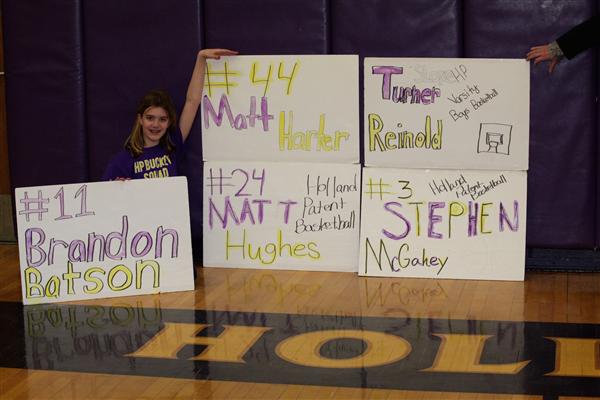 # 44
Matt
Harter
Turner
HP
Varsity
Boys Basketball
Reinold
HP BUCKET
SQUAD
#11
Brandon
Batson
#24
MATT
Hughes
Holland
Patent
Basketball
# 3
Holland
Patent
Basketball
STEPHEN
McGahey
HOL